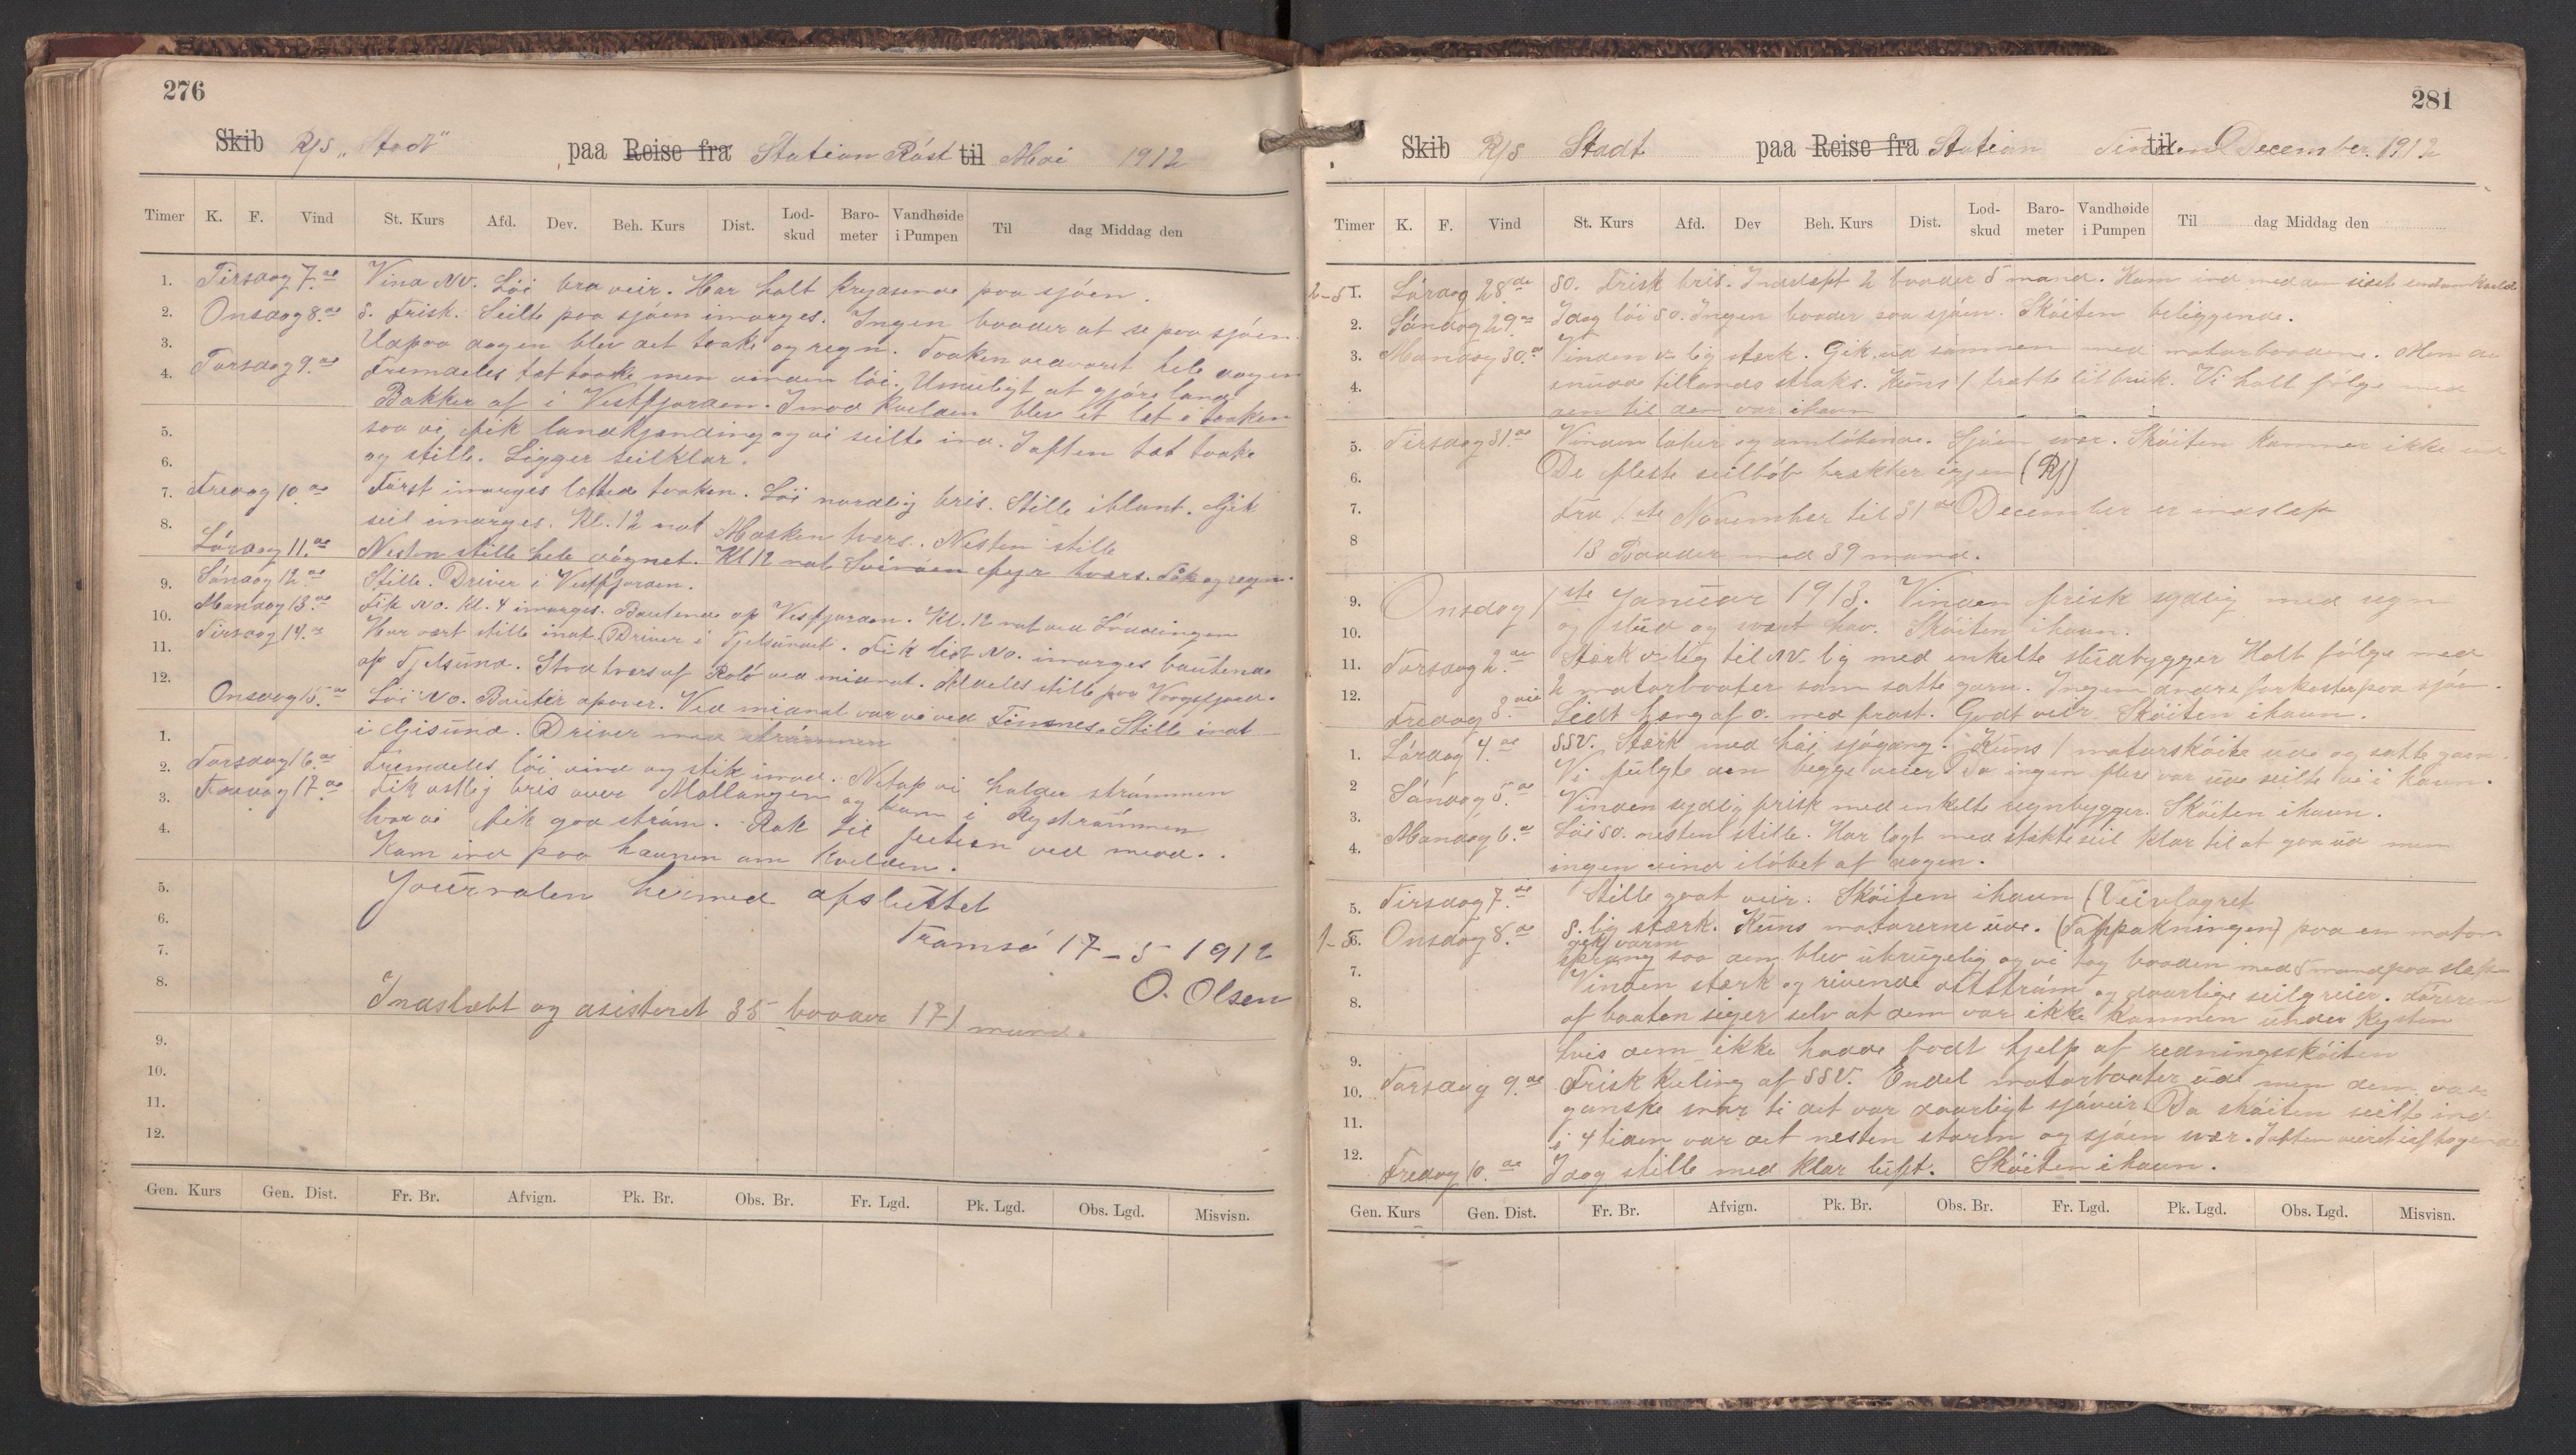 276
Skib R/S „Stadt" paa Reise fra Station Röst til Mai 1912
Timer K. F. Vind St. Kurs Afd. Dev. Beh. Kurs Dist. Lod-skud Baro-meter Vandhøide i Pumpen Til dag Middag den
1. Tirsdag 7.de Vind NV. Löi bra veir. Har holt krydsende paa sjöen.
2. Onsdag 8.de S. Frisk. Seilte paa sjöen imorges. Ingen baader at se paa sjöen.
3. Udpaa dagen blev det taake og regn. Taaken vedvaret hele dagen
4. Torsdag 9.de Fremdeles tæt taake men vinden löi. Umuligt at gjöre land
Bakker af i Vestfjorden. Imod kvelden blev et let i taaken
5. saa vi fik landkjending og vi seilte ind. Iaften tæt taake
6. og stille. Ligger seilklar.
7. Fredag 10.de Först imorges lettede taaken. Löi nordlig bris. Stille iblant. Gik
8. seil imorges. Kl. 12 nat Mosken tvers. Nesten stille
Lördag 11.de Nesten stille hele dögnet. Kl 12 nat Svinöen fyr tvers. Tåk og regn.
9. Söndag 12.de Stille. Driver i Vestfjorden.
10. Mandag 13.de Fik NO. Kl. 4 imorges. Bautende op Vestfjorden. Kl. 12 nat ved Lödingen
11. Tirsdag 14.de Har vært stille inat. Driver i Tjelsundet. Fik lidt NO. imorges bautende
12. op Tjelsund. Stod tvers af Rolö ved midnat. Aldeles stille paa Vaagsfjord.
Onsdag 15.de Löi NO. Bauter opover. Ved midnat var vi ved Finnnes. Stille inat
1. i Gisund. Driver med strömmen
2. Torsdag 16.de Fremdeles löi vind og stik imod. Netop vi holder strömmen
3. Fredag 17.de Fik östlig bris over Mallangen og kom i Ryströmmen
4. hvor vi fik god ström. Rak til
Kam ind paa havnen om kvelden. ved
5. Journalen heimed afsluttet
6. Tromsö 17-5 1912
7. O. Olsen
8. Indslæbt og asisteret 35 baader 171 mand.
9.
10.
11.
12.
Gen. Kurs Gen. Dist. Fr. Br. Afvign. Pk. Br. Obs. Br. Fr. Lgd. Pk. Lgd. Obs. Lgd. Misvisn.
281
Skib R/S Stadt paa Reise fra Station til December 1912
Timer K. F. Vind St. Kurs Afd. Dev Beh. Kurs Dist. Lod-skud Baro-meter Vandhøide i Pumpen Til dag Middag den
2-5 1. Lördag 28de SO. Frisk bris. Indslept 2 baader 5 mand. Kom ind med den sidst
2. Söndag 29de Idag löi SO. Ingen baader paa sjöen. Sköiten beliggende.
3. Mandag 30.de Vinden V lig stærk. Gik ud sammen med motorbaadene. Men de
4. snudde tillands straks. Kuns 1 trakk til bruk. Vi holt fölge med
den til den var ihavn
5. Tirsdag 31.de Vinden laber og omlöbende. Sjöen svær. Sköiten kommer ikke ud
6. De fleste seilböb trækker igjen (RJ)
7. Fra 1ste November til 31de December er indslep
8 13 Baader med 39 mand.
9. Onsdag 1ste Januar 1913. Vinden frisk sydlig med regn
10. og slud og svært hav. Sköiten ihavn.
11. Torsdag 2.den Stærk V-lig til NV-lig med enkelte sludbygger Holt fölge med
12. 2 motorbaater som satte garn. Ingen andre farkoster paa sjöen.
Fredag 3.die Lidt heng af O. med frost. Godt veir. Sköiten ihavn.
1. Lördag 4.de SSV. Stærk med höi sjögang. Kuns 1 motorsköite ude og satte garn.
2 Vi fulgte den begge veier. Da ingen flere var ude seilte vi i havn.
3. Söndag 5.de Vinden sydlig frisk med enkelte regnbygger. Sköiten ihavn.
4. Mandag 6.de Löi SO. nesten stille. Har lagt med stekte seil klar til at gaa ud men
ingen vind ilöbet af dagen.
5. Tirsdag 7.de Stille godt veir. Sköiten ihavn (Veivlagret
1-5 6. Onsdag 8.de S. lig stærk. Kuns motorerne ude. (Toppakningen) paa en motor
gik varm
7. sprang saa den blev ubrugelig og vi tog baaden med 5 mand paa slep.
8. Vinden stærk og rivende östström og daarlige seilgreier. Föreren
af baaten siger selv at dem var ikke kommen under kysten
9. hvis dem ikke hadde fodt hjelp af redningssköiten
10. Torsdag 9.de Frisk kuling af SSV. Endel motorbaater ude men dem var
11. ganske snar ti det var daarligt sjöveir. Da sköiten seilte ind
12. i 4 tiden var det nesten storm og sjöen svær. Iaften veiret iaftagende
Fredag 10.de Idag stille med klar luft. Sköiten ihavn.
Gen. Kurs Gen. Dist. Fr. Br. Afvign. Pk. Br. Obs. Br. Fr. Lgd. Pk. Lgd. Obs. Lgd. Misvisn.